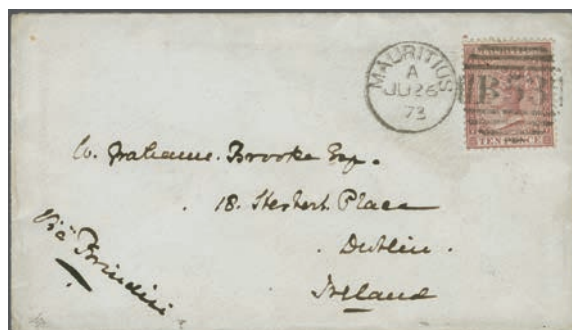 MAURITIUS
A
JU 26
73
B53
TEN PENCE
W. Grahame. Brooke Esq.
18. Herbert Place
Dublin.
Ireland
Via Brindisi